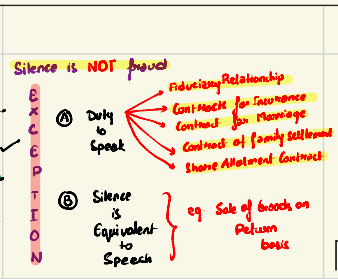 Silence is NOT fraud
EXCEPTION
Ⓐ Duty to Speak
Fiduciary Relationship
Contracts for Insurance
Contract for Marriage
Contract of family Settlement
Share Allotment Contract
Ⓑ Silence
is
Equivalent
to
Speech
eg. Sale of Goods on
Return
basis